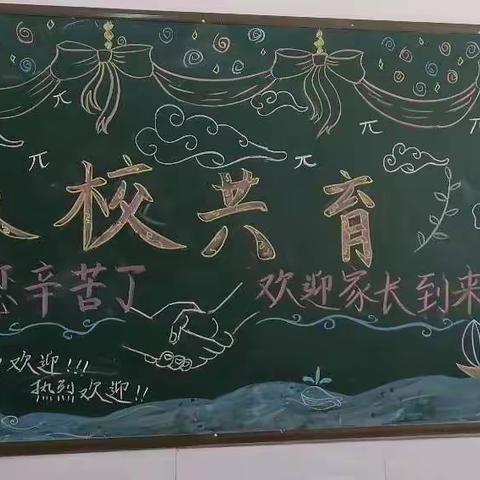 校共育
您辛苦了 欢迎家长到来
欢迎!!!
热烈欢迎!!